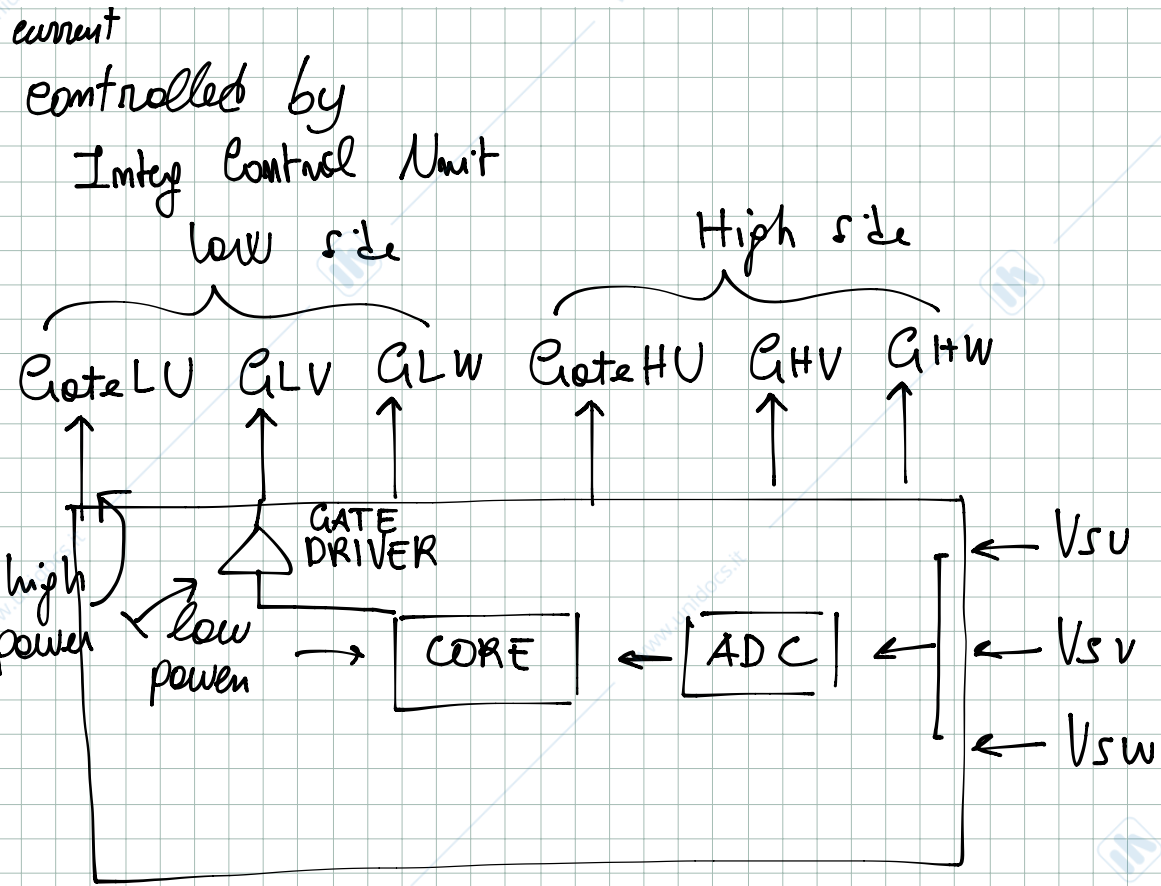 current
controlled by
Integ Control Unit
low side
High side
Gate LU GLV GLW Gate HU GHV GHW
GATE
DRIVER
VSU
high
power
low
power
CORE
ADC
VSV
VSW
www.unidocs.it